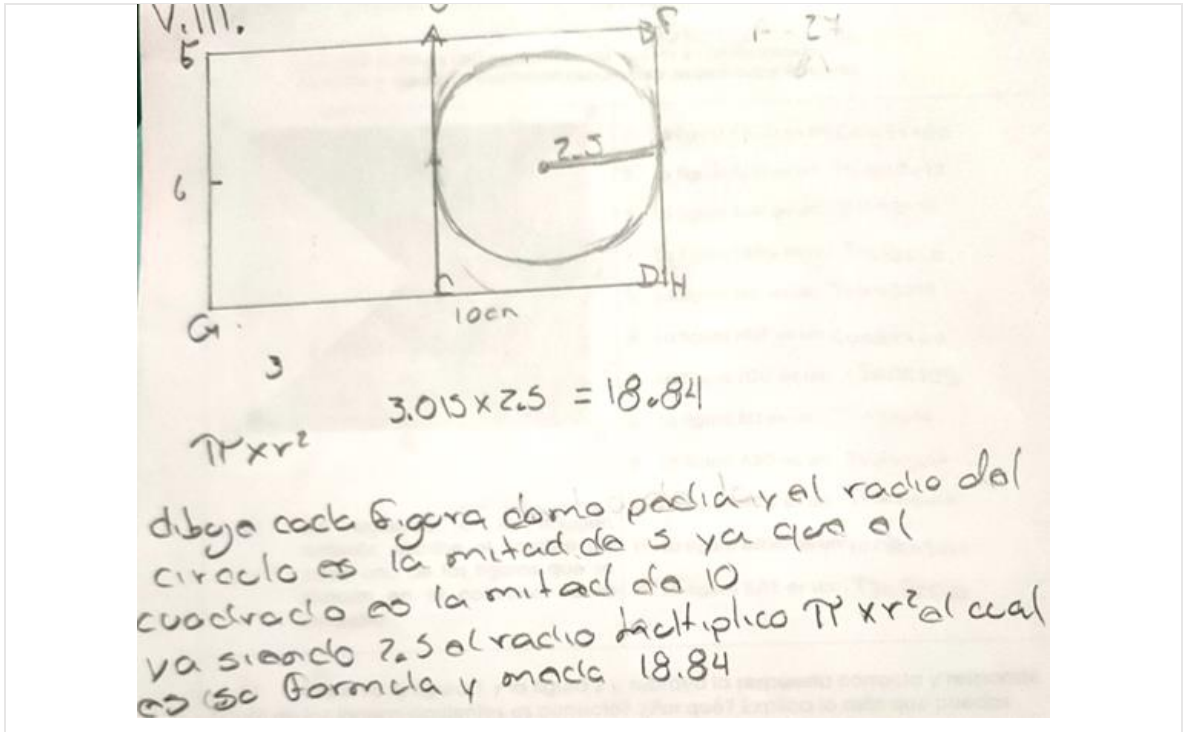 V.III.
F
5
2.5
6
C
D
H
G
10cn
3
3.015 x 2.5 = 18.84
π x r²
dibuje cada figura como pedia y el radio del
circulo es la mitad de 5 ya que el
cuadrado es la mitad de 10
ya siendo 2.5 el radio multiplico π x r² el cual
es so formula y meda 18.84